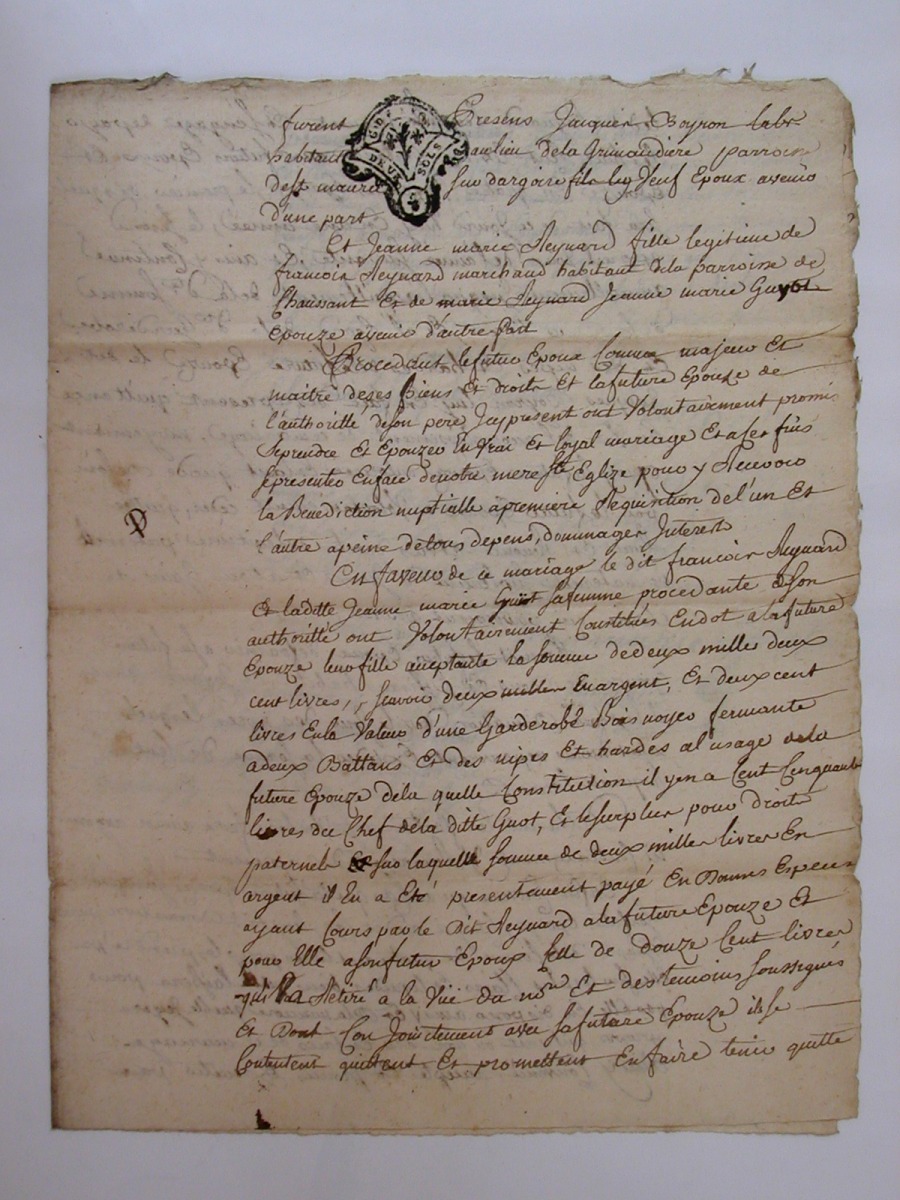 furent Presens Jacques Boyron labr
habitant au lieu de la Grimaudiere parroisse
de st maurice sur dargoire futur Epoux avenir
d'une part
Et Jeanne marie Reynard fille legitime de
francois Reynard marchand habitant de la parroisse de
Chaussant Et de marie Reynard Jeanne marie Guyot
Epouze avenir d'autre part
Procedant le futur Epoux Comme majeur Et
maitre de ses Biens Et droits Et la future Epouze de
l'authoritté de son pere Icy present ont Volontairement promis
se prendre Et Epouzer En vrai Et loyal mariage Et a ces fins
se presenter En face de notre mere ste Eglize pour y Recevoir
la Benediction nuptialle a premiere Requisition de l'un Et
l'autre a peine de tous depens, dommages Interest
En faveur de ce mariage le dit francois Reynard
Et laditte Jeanne marie Guiot sa femme procedante de son
authoritté ont Volontairement Constitués En dot a la future
Epouze leur fille acceptante la somme de deux milles deux
cent livres, scavoir deux milles En argent, Et deux cent
livres En la Valeur d'une Garderobe Bois noyer fermante
a deux Battans Et des nipes Et hardes a l'usage de la
future Epouze de la quelle Constitution il y en a Cent Cenquante
livres du Chef de la ditte Guot, Et le surplus pour droits
paternels sur laquelle somme de deux milles livres En
argent il En a Eté presentement payé En Bonnes Especes
ayant Cours par le Dit Reynard a la future Epouze Et
pour Elle a son futur Epoux celle de Douze Cent livres
qu'il a Retiré a la Vüe du nore Et des temoins soussignés
Et Dont Conjointement avec sa future Epouze ils se
Contentent quittent Et promettent En faire tenir quitte
D
G. DE LYON
DEUX SOLS